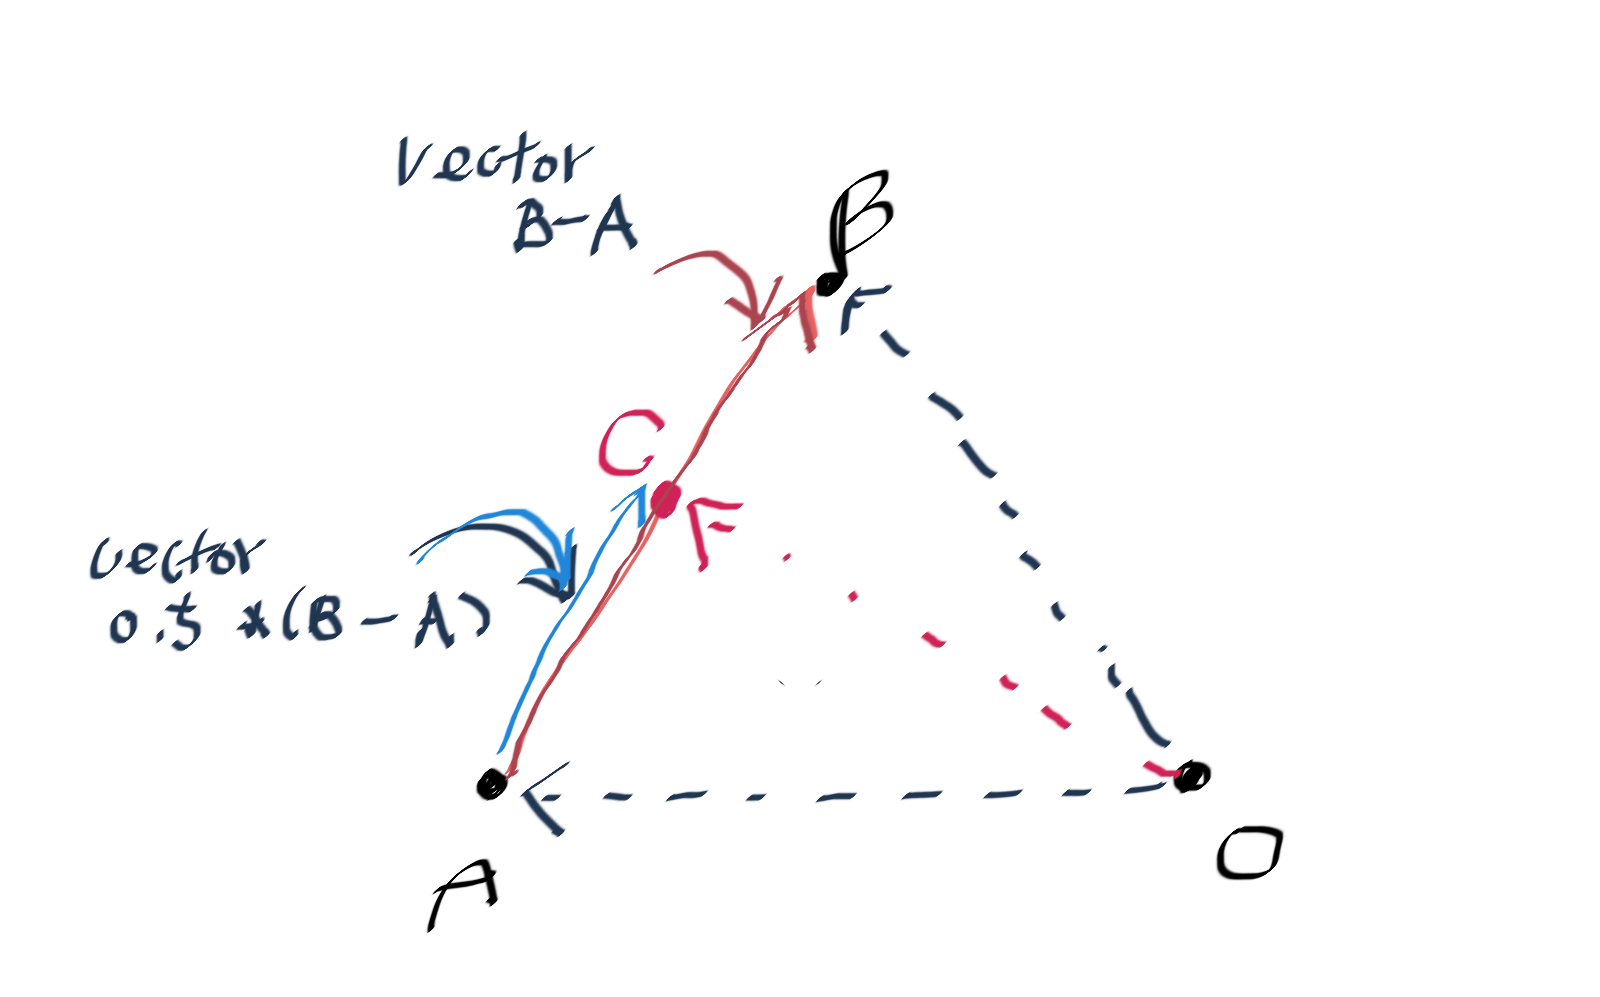 Vector
B-A
B
C
vector
0.5 *(B-A)
A
O